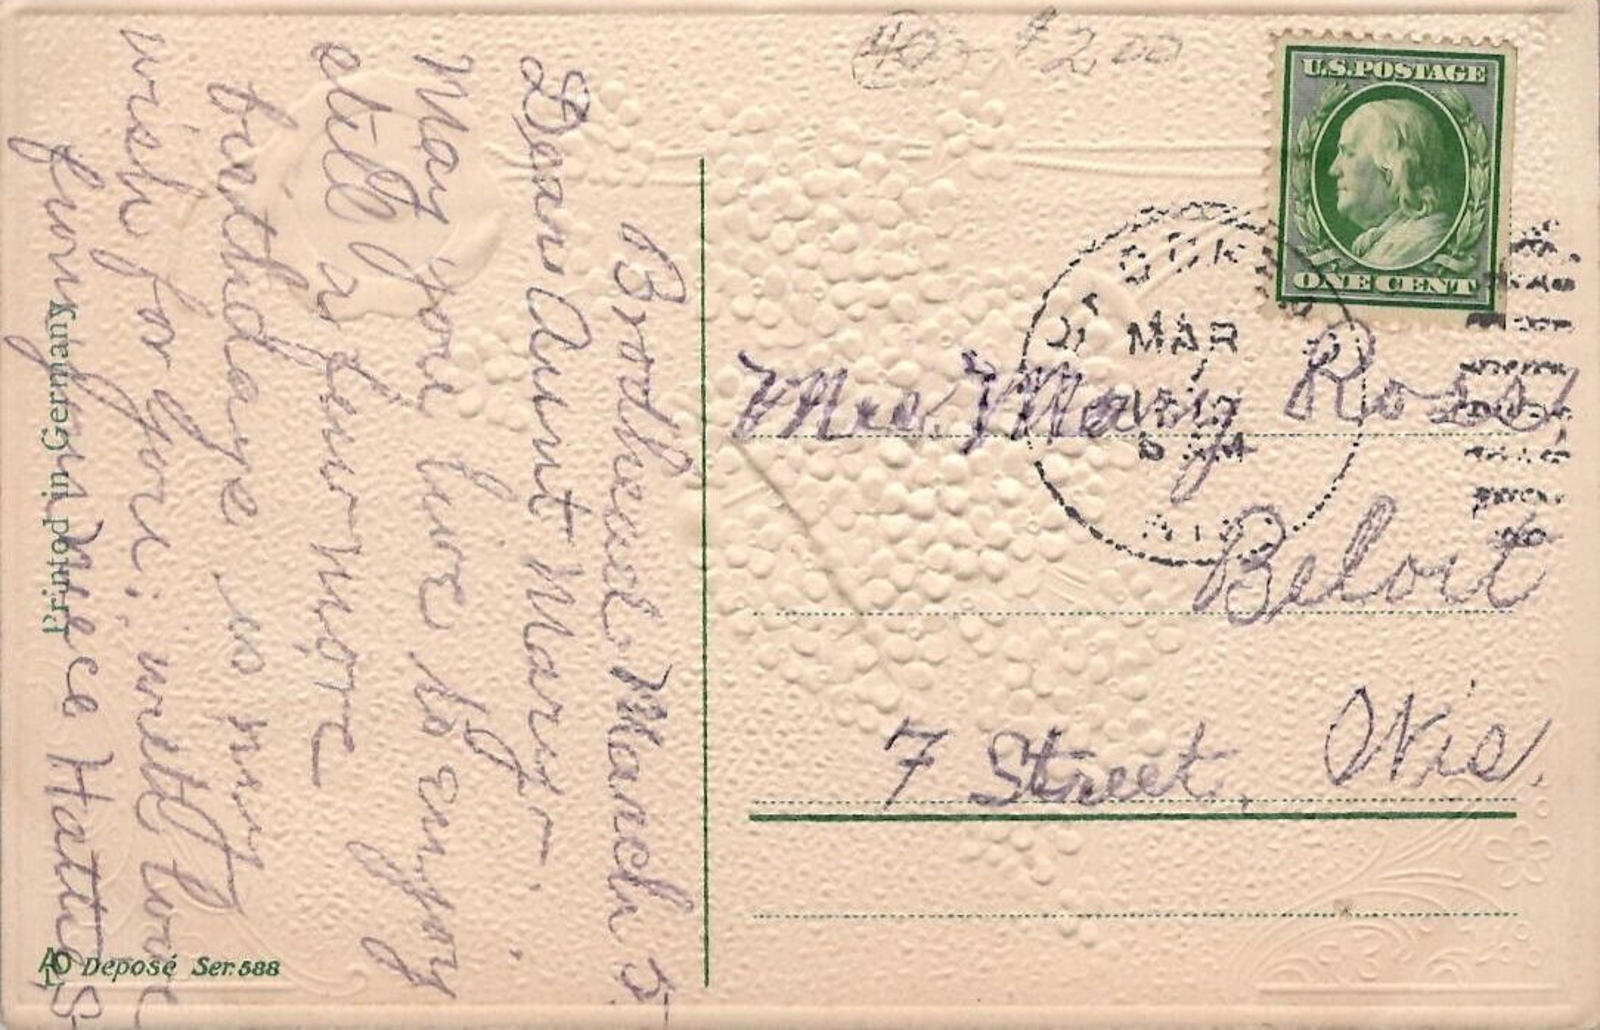 $2.00
U.S. POSTAGE
ONE CENT
MAR
WIS
Mrs. Mary Ross,
Beloit
7 Street, Wis.
March 5
Dear Aunt Mary.
May you live to enjoy
still a few more
birthdays is my
wish for you; with love
from your Niece Hattie S
Printed in Germany
Deposé Ser. 588